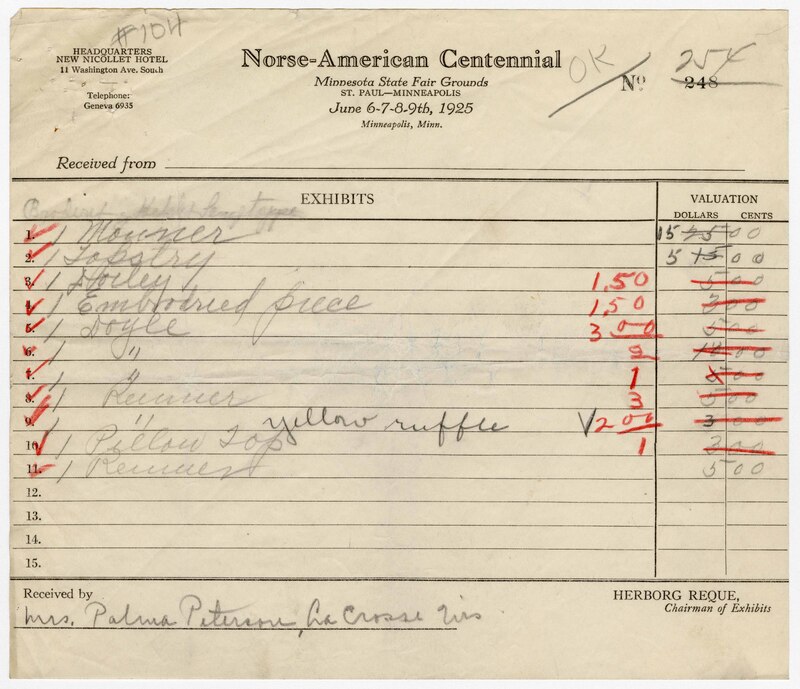 #104
HEADQUARTERS
NEW NICOLLET HOTEL
11 Washington Ave. South
Telephone:
Geneva 6935
Norse-American Centennial
Minnesota State Fair Grounds
ST. PAUL—MINNEAPOLIS
June 6-7-8-9th, 1925
Minneapolis, Minn.
OK
254
Nº 248
Received from
EXHIBITS
VALUATION
DOLLARS CENTS
1. 1 Mounner 15 25 00
2. 1 Tapstry 5 15 00
3. 1 Doiley 1,50 5 00
4. 1 Embrodried piece 1,50 3 00
5. 1 Doyle 3 00 5 00
6. 1 " 2 00
7. 1 " 1 00
8. 1 Runner 3 5 00
9. 1 " yellow ruffle V2 00 3 00
10. 1 Pillow Top 1 3 00
11. 1 Runner 5 00
12.
13.
14.
15.
Received by
Mrs. Palma Peterson, La Crosse Wis
HERBORG REQUE,
Chairman of Exhibits